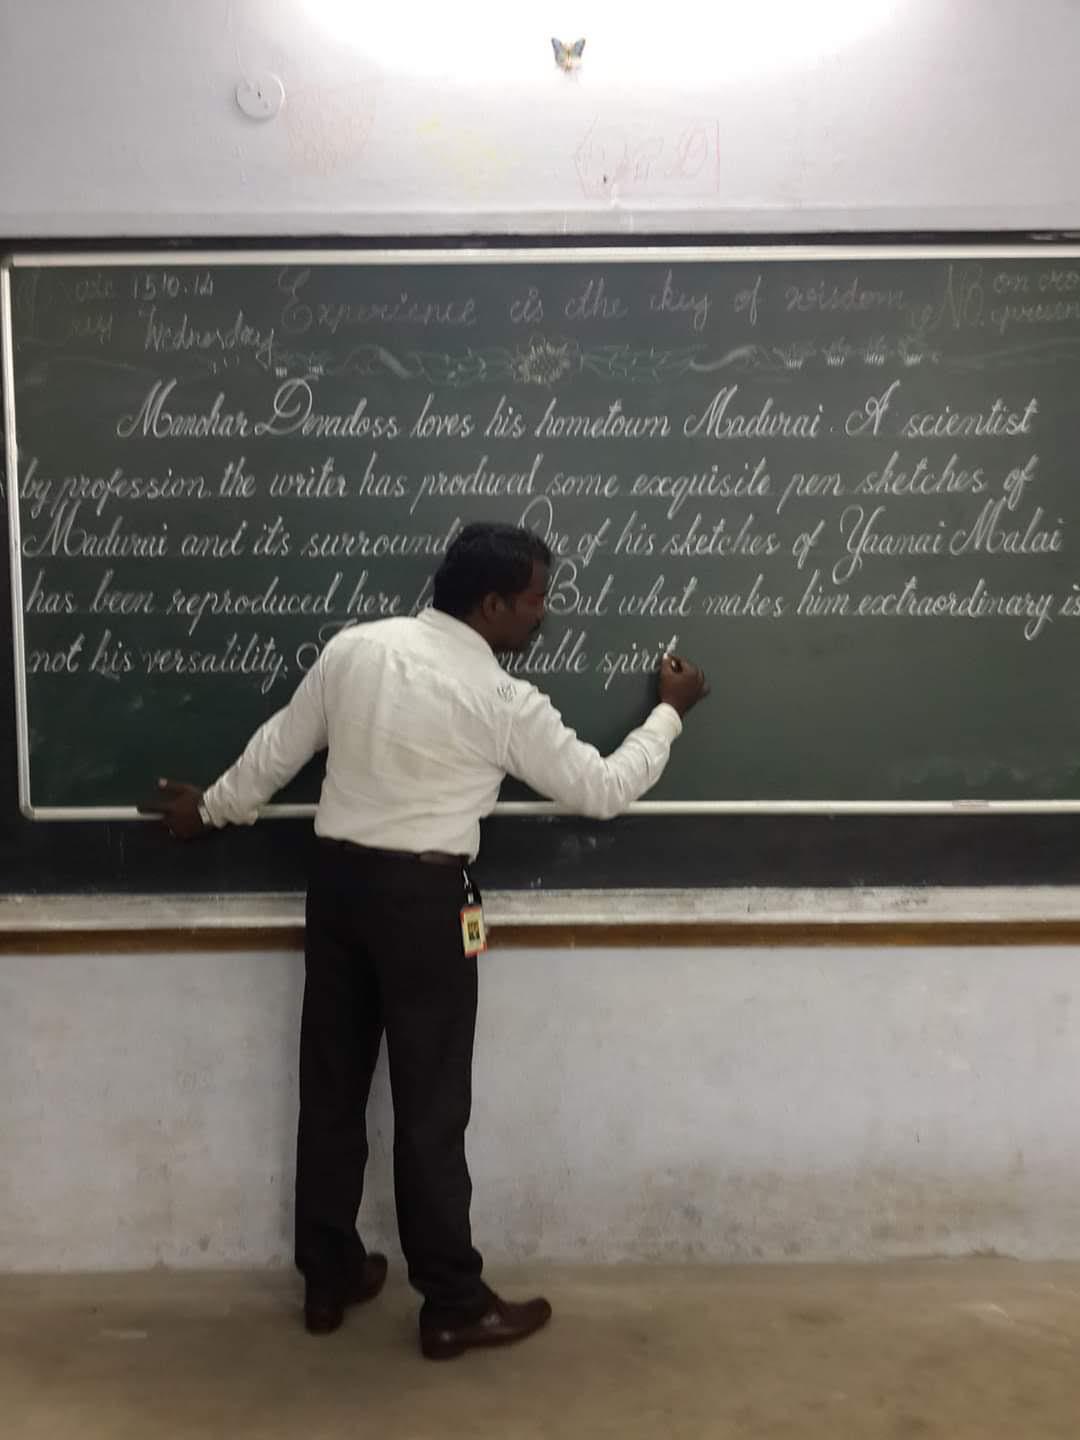 Date 15.10.14 Experience is the key of wisdom No. on
Day Wednesday
Manohar Devadoss loves his hometown Madurai. A scientist
by profession, the writer has produced some exquisite pen sketches of
Madurai and it's surround of his sketches of Yaanai Malai
has been reproduced here But what makes him extraordinary is
not his versatility. spirit